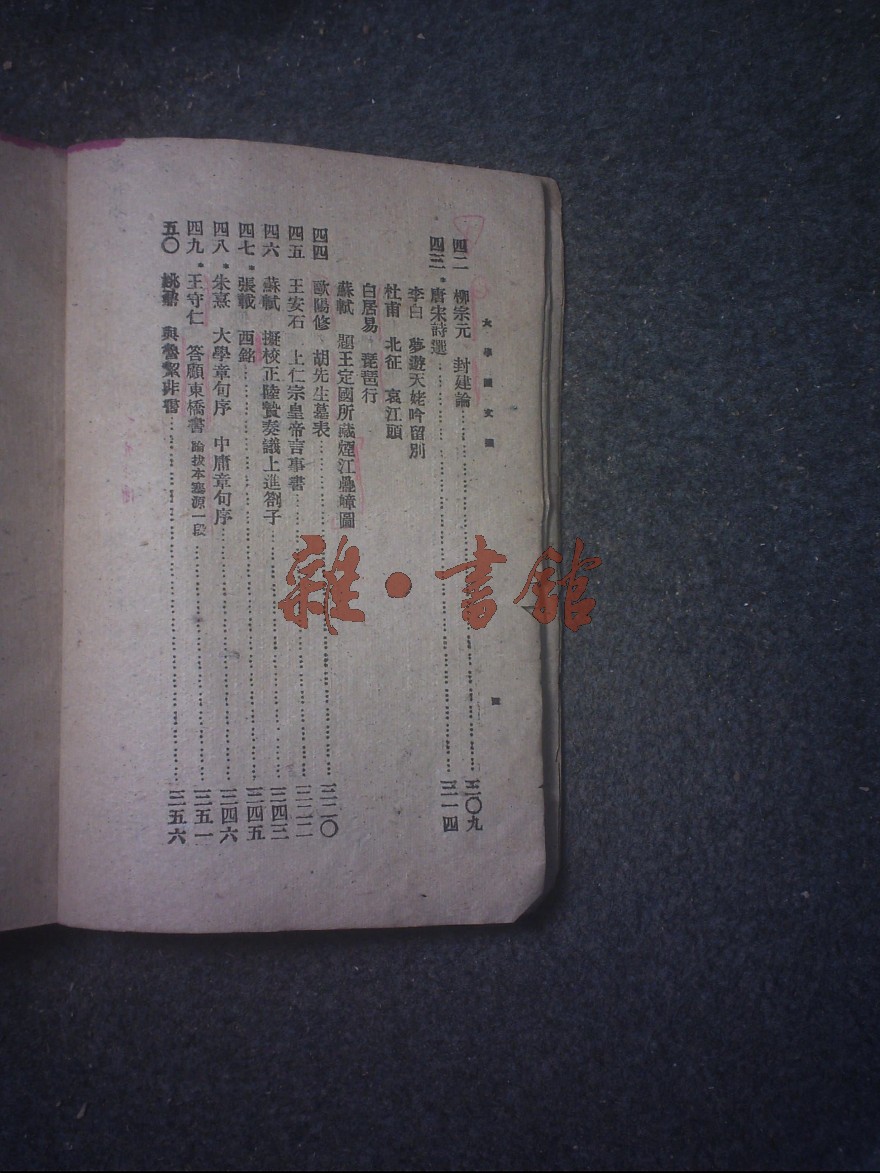 大學國文選
四二　柳宗元　封建論……三〇九
四三・唐宋詩選……三一四
李白　夢遊天姥吟留別
杜甫　北征　哀江頭
白居易　琵琶行
蘇軾　題王定國所藏煙江疊嶂圖
四四　歐陽修　胡先生墓表……三二〇
四五　王安石　上仁宗皇帝言事書……三二二
四六　蘇軾　擬校正陸贄奏議上進劄子……三四三
四七・張載　西銘……三四五
四八・朱熹　大學章句序　中庸章句序……三四六
四九・王守仁　答顧東橋書　論拔本塞源一段……三五一
五〇　姚鼐　與魯絜非書……三五六
雜・書館